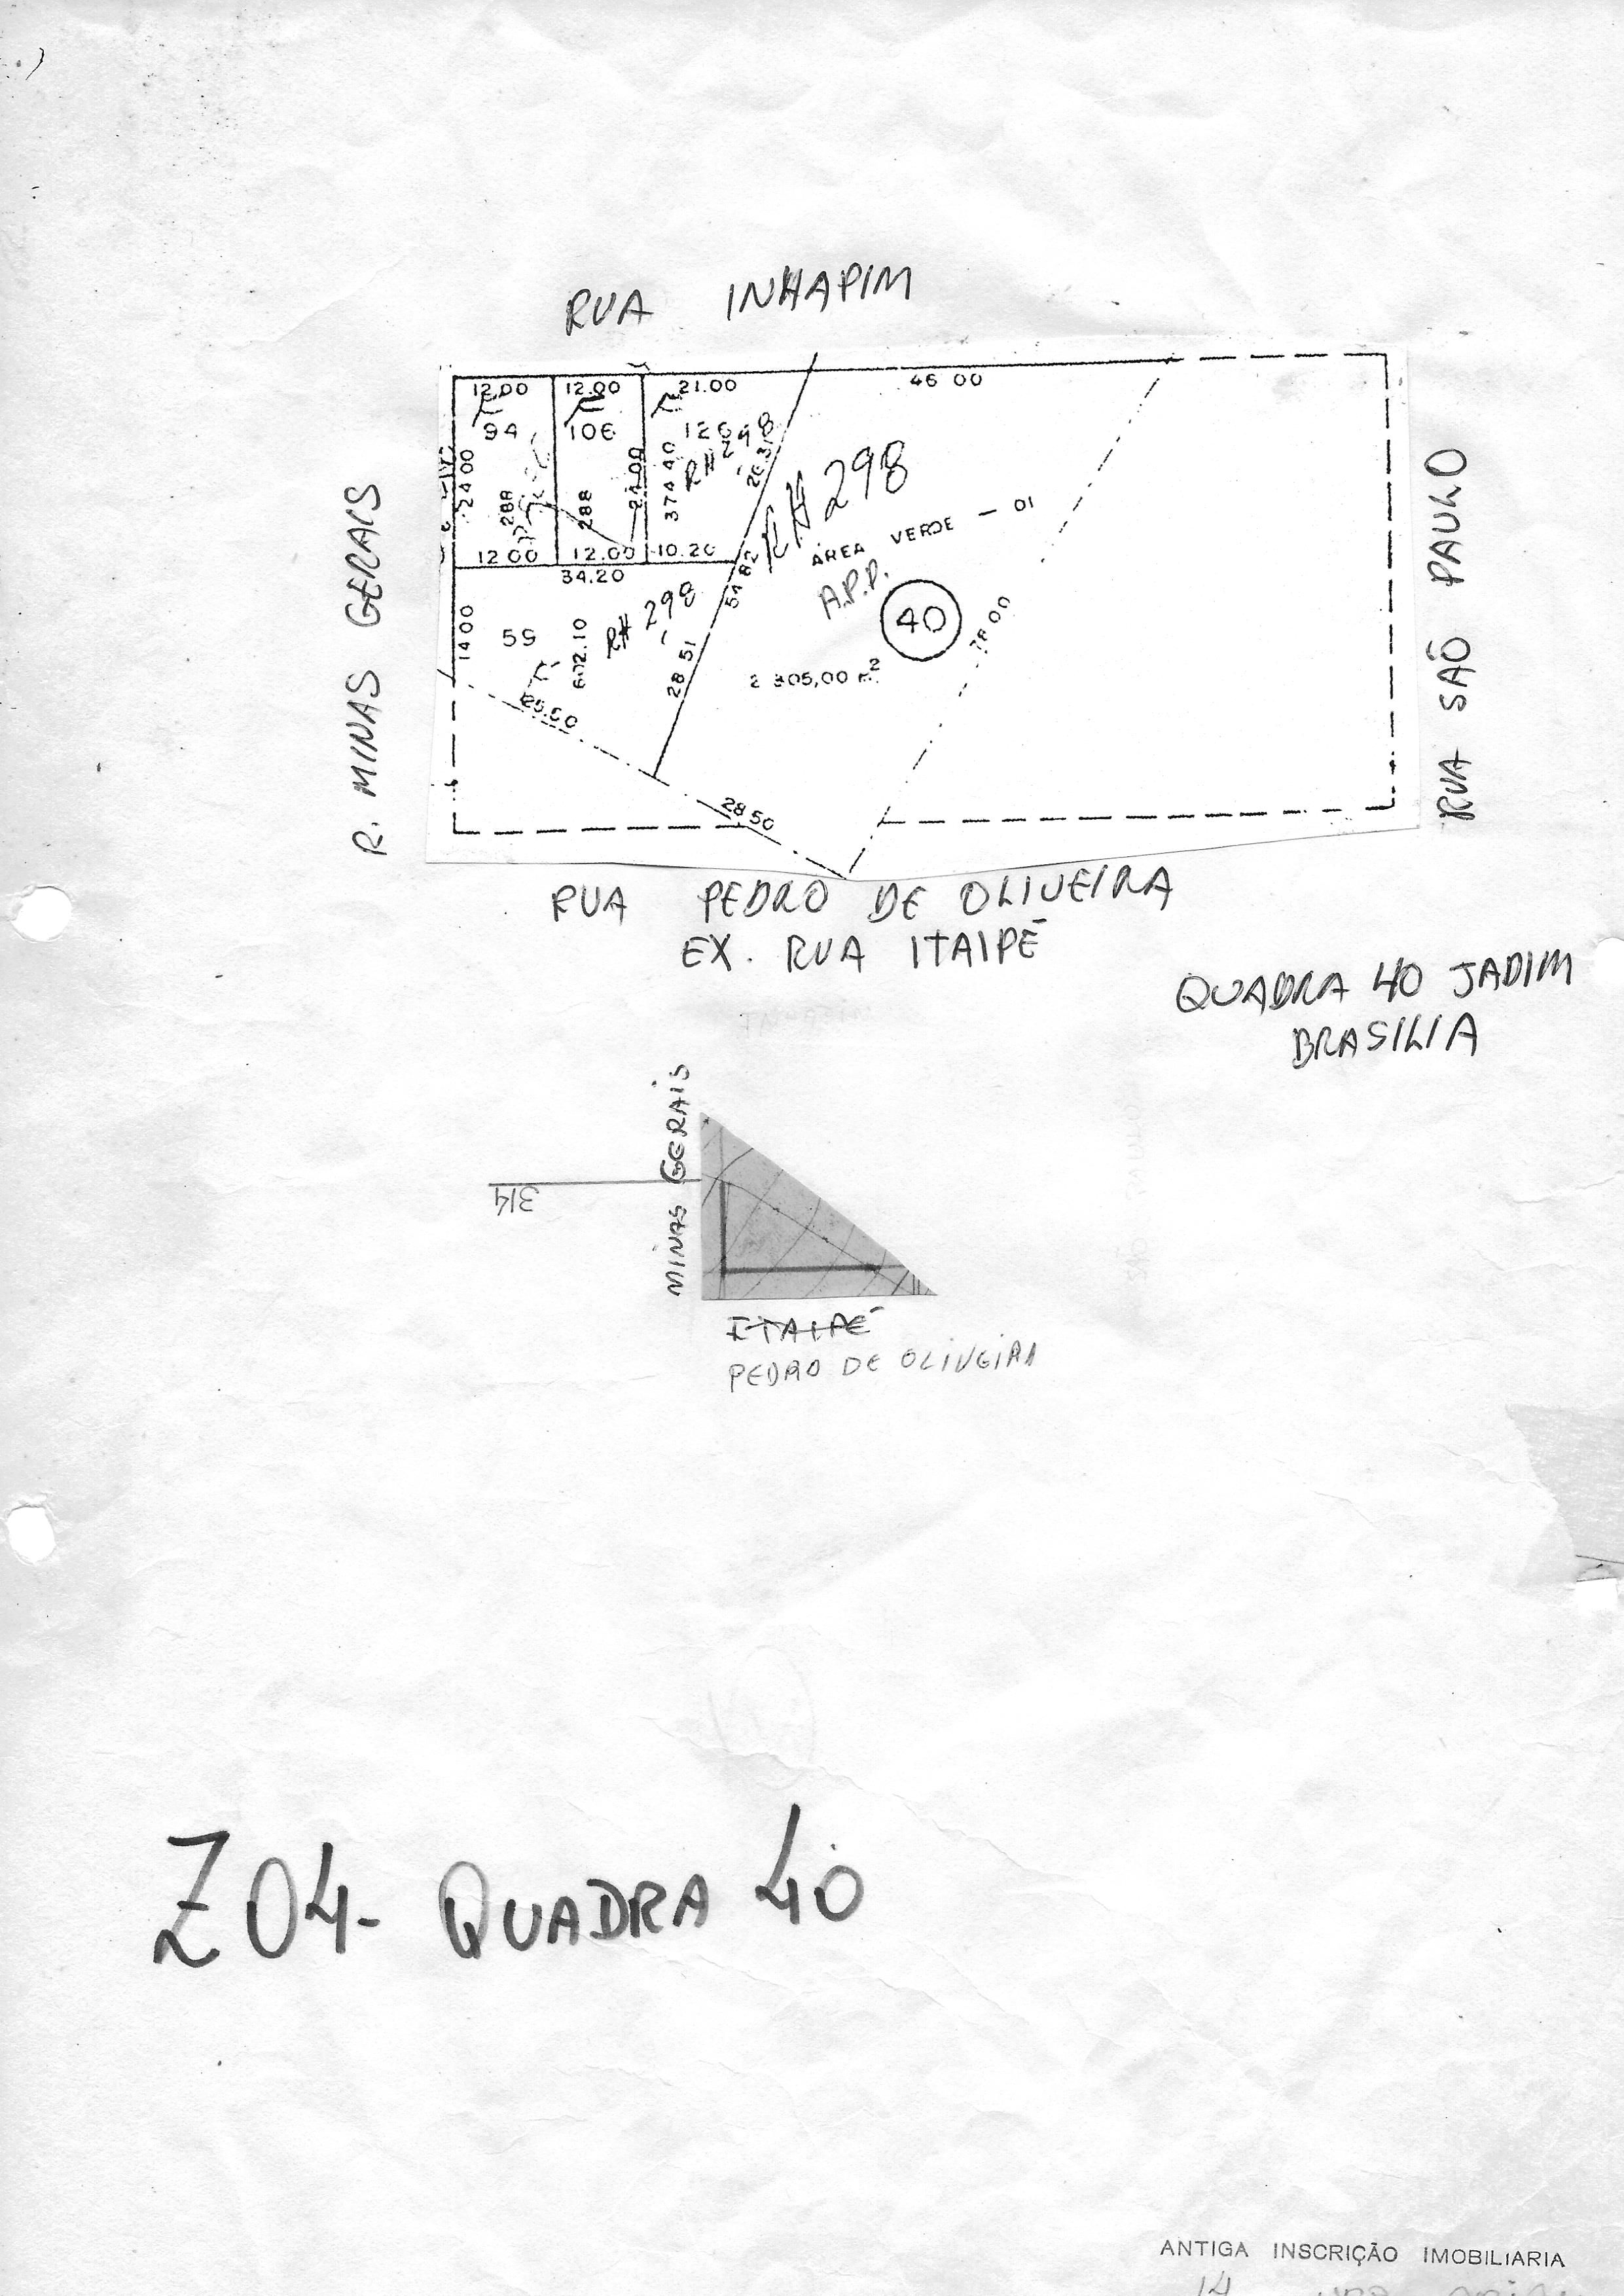 RUA INHAPIM
12.00 12.00 21.00 46 00
94 106 126
R# 298
24 00 288 288 24.00 374 40 26.31
R# 298
12 00 12.00 10.20
34.20
ÁREA VERDE - 01
A.P.P.
40
54 82
78 00
14 00 59 672.10 R# 298
28 51
2 305,00 m²
28 50
R. MINAS GERAIS
RUA SÃO PAULO
RUA PEDRO DE OLIVEIRA
EX. RUA ITAIPÉ
QUADRA 40 JADIM
BRASILIA
MINAS GERAIS
314
ITAIPÉ
PEDRO DE OLIVEIRA
Z04- QUADRA 40
ANTIGA INSCRIÇÃO IMOBILIARIA
14